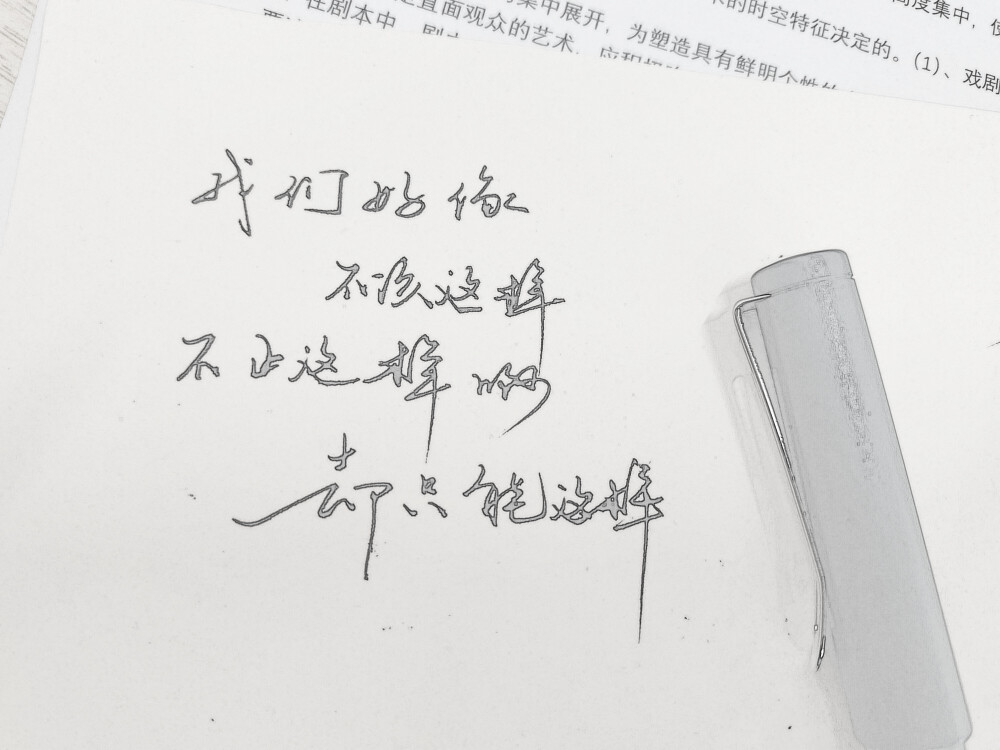 的时空特征决定的。(1)、戏剧
集中展开，为塑造具有鲜明个性的
直面观众的艺术
在剧本中
我们好像
不该这样
不止这样啊
却只能这样